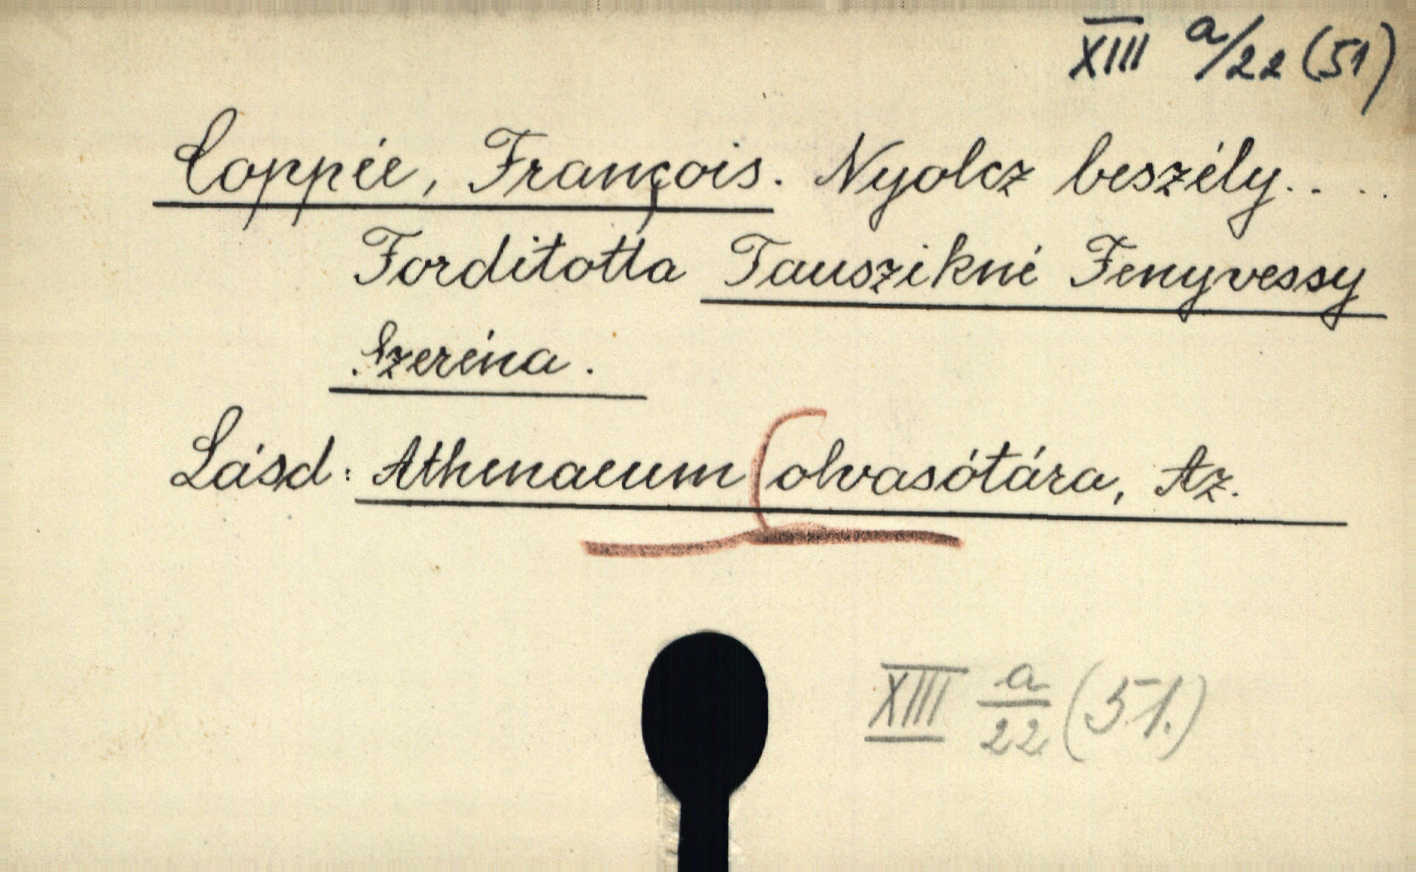 XIII a/22 (51)
Coppée, François. Nyolcz beszély....
Forditotta Tauszikné Fenyvessy
Szeréna.
Lásd: Athenaeum olvasótára, Az.
XIII a/22 (51.)